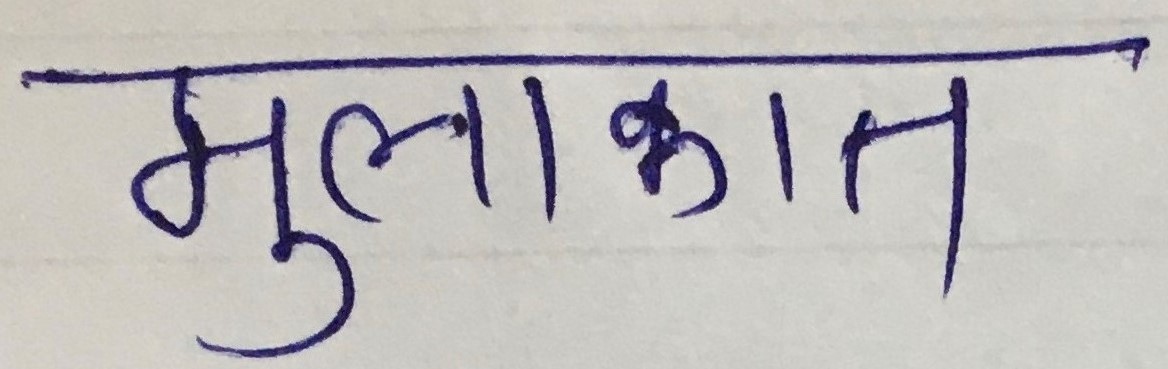 मुलाकात